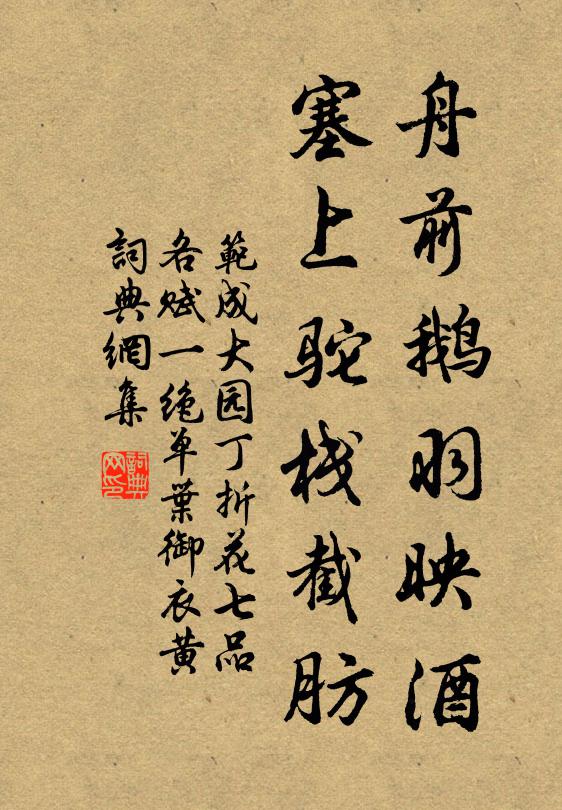 舟前鹅羽映酒
塞上驼栈截肪
範成大园丁折花七品
各赋一绝单葉御衣黄
詞典網集
詞典网印